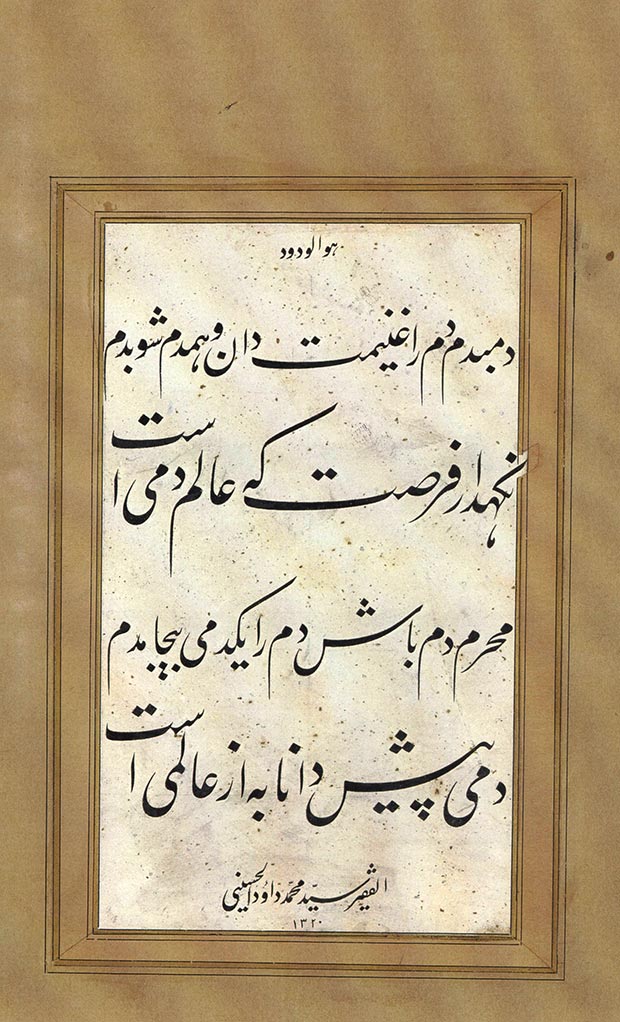 هو الودود
دمبدم دم را غنیمت دان و همدم شو بدم
نگهدار فرصت که عالم دمی است
محرم دم باش دم را یکدمی بیجا مدم
دمی پیش دانا به از عالمی است
الفقیر سید محمد داود الحسینی
۱۳۲۰